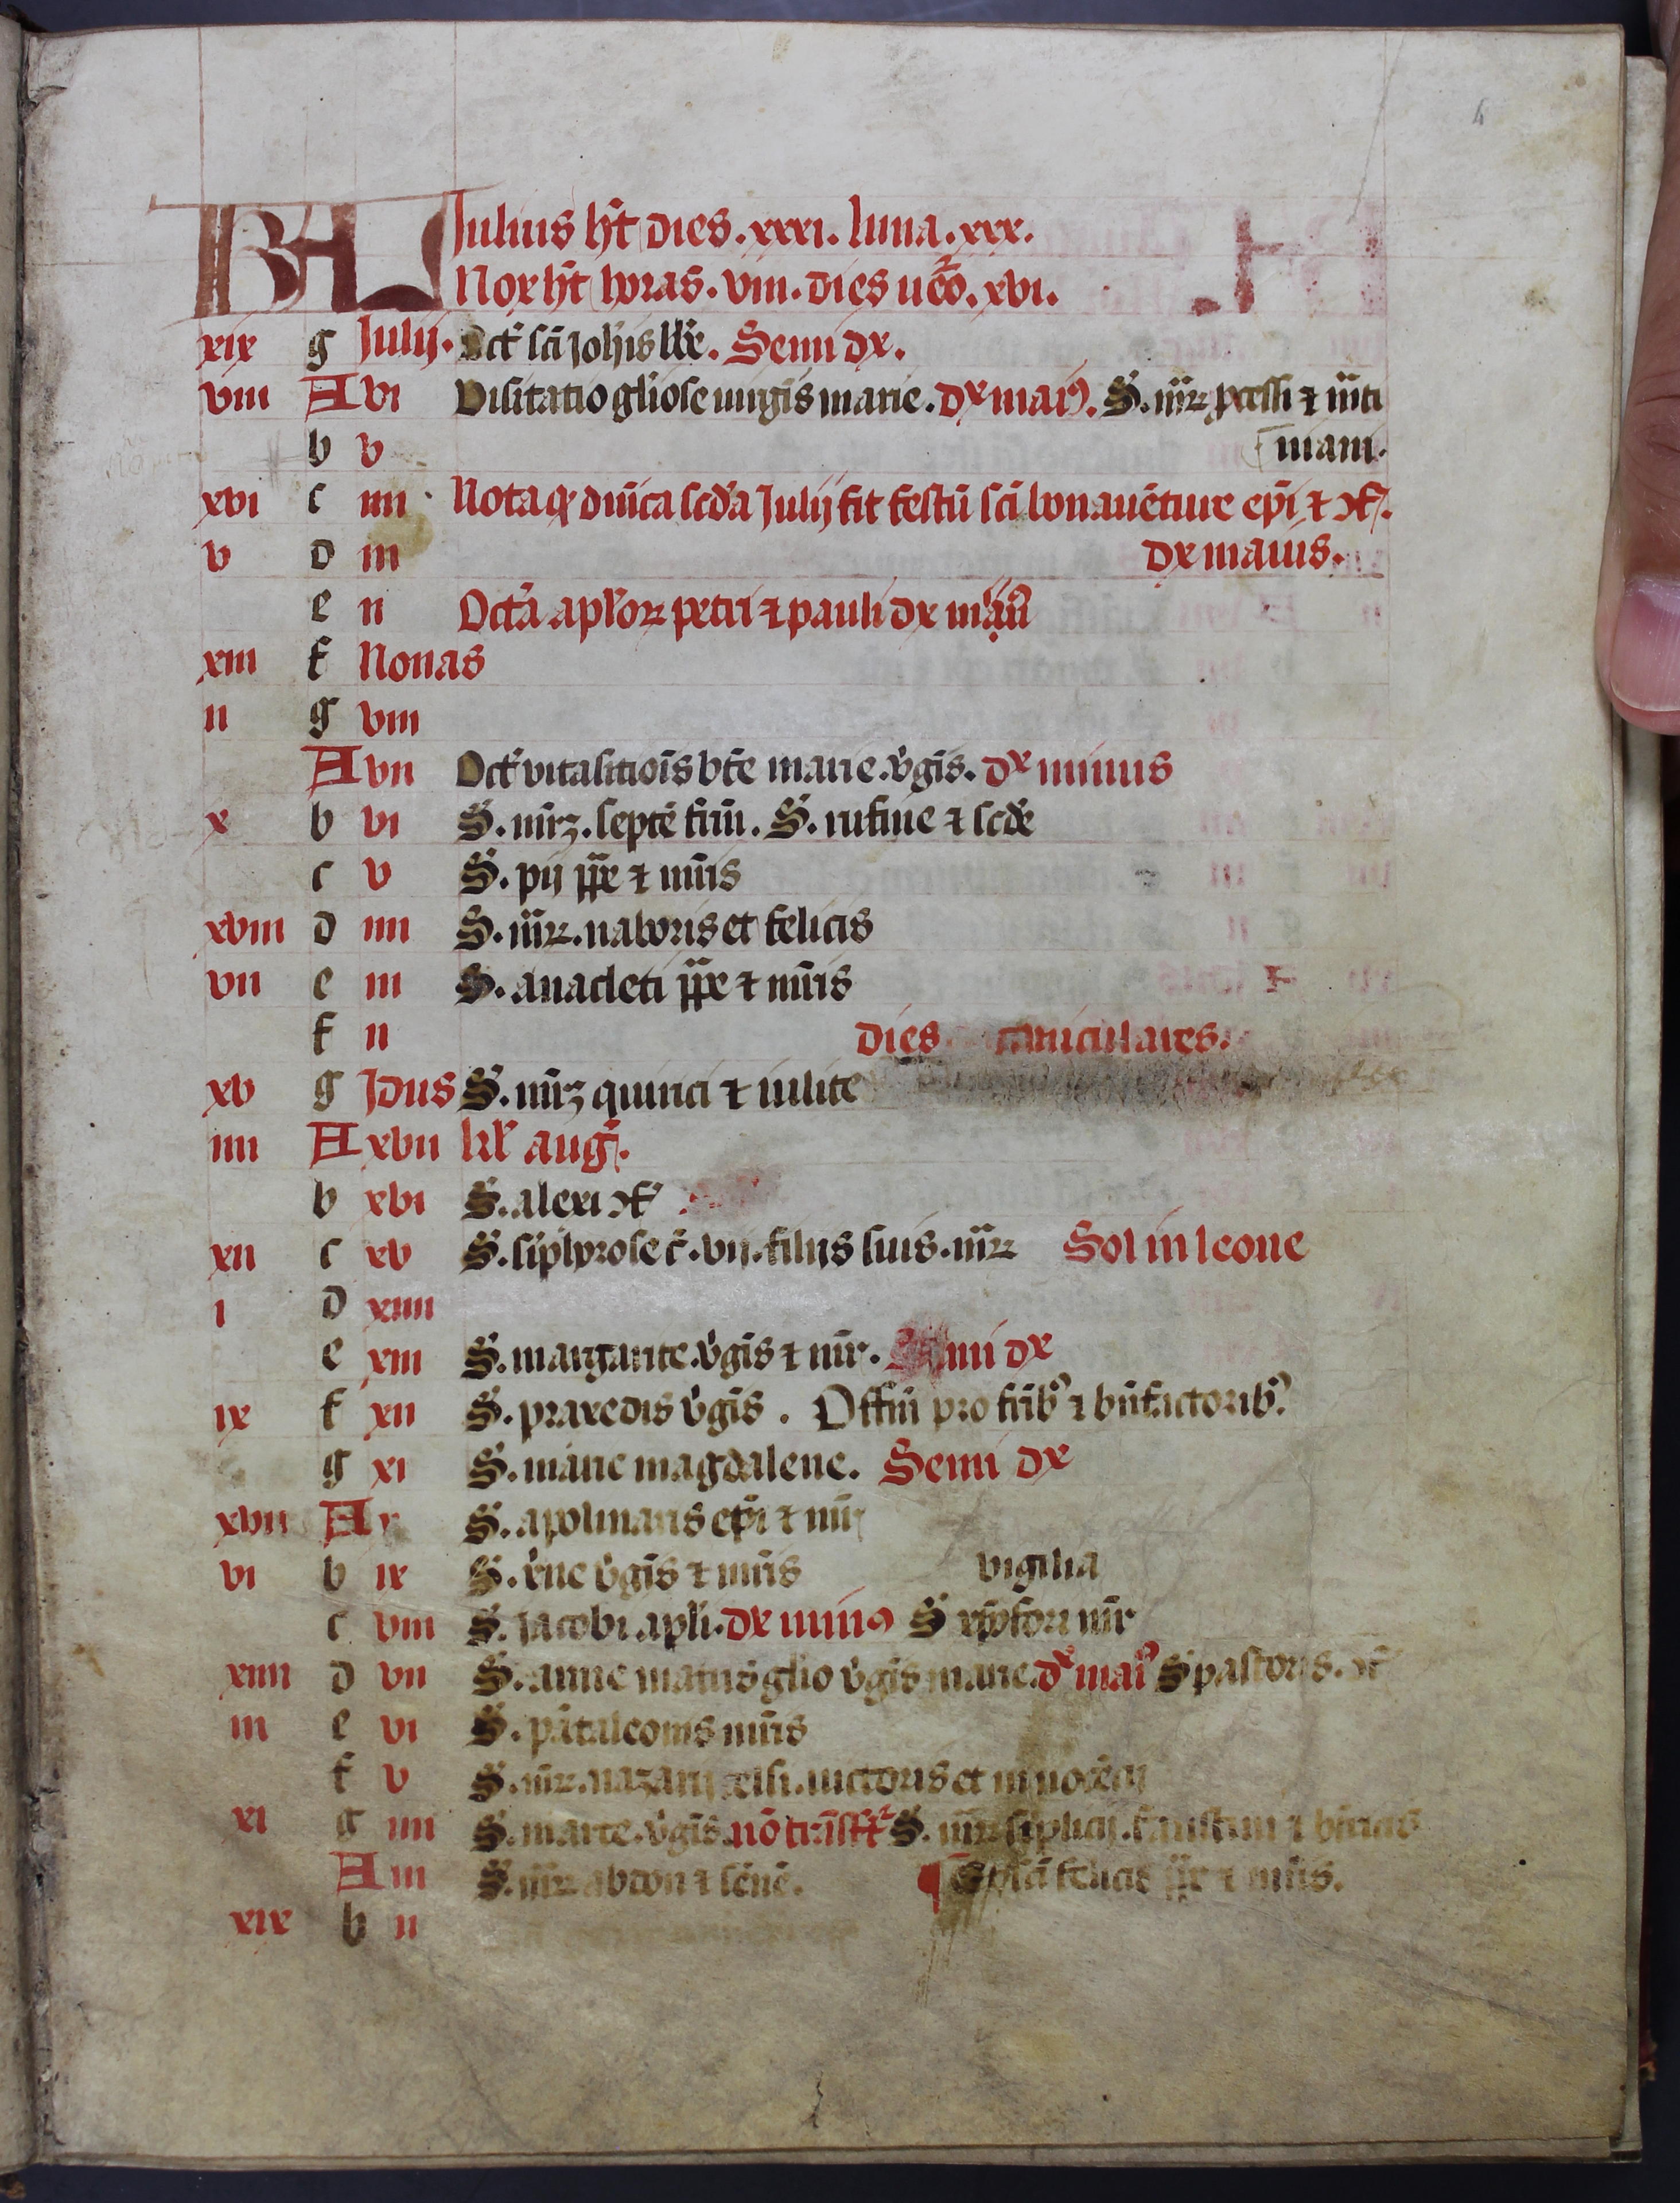 KL Julius ht dies. xxxi. luna. xxx.
Nox ht horas. viii. dies uero. xvi.
xix g Julij. Oct sci Johis bbe. Semi dx.
viii A vi Visitatio gliose uirgis marie. dx mai9. S. mr2 pcessi ⁊ mti
b v niani.
xvi c iiii Nota q dnica scda Julij fit festu sci bonauenture epi ⁊ cf.
v d iii dx maius.
e ii Octa aplor petri ⁊ pauli dx
xiii f Nonas
ii g viii
A vii Oct visitatiois bte marie. vgis. dx minus
x b vi S. mrz. septe frm. S. rufine ⁊ scde
c v S. pij ppe ⁊ mris
xviii d iiii S. mr2. naboris et felicis
vii e iii S. anacleti ppe ⁊ mris
f ii dies caniculares.
xv g Jdus S. mrz quirici ⁊ iulite
iiii A xvii kl' aug.
b xvi S. alexi cf
xii c xv S. siphorose c. vii. filijs suis. mr2 Sol in leone
i d xiiii
e xiii S. margarite. vgis ⁊ mr. Semi dx
ix f xii S. praxedis vgis. Offm pro frib9 ⁊ bnfactorib9.
g xi S. marie magdalene. Semi dx
xvii A x S. apolinaris epi ⁊ mr
vi b ix S. xne vgis ⁊ mris vigilia
c viii S. Jacobi. apli. dx min9 S xpofori mr
xiiii d vii S. anne matris glio vgis marie. dx mai9 S pastoris. cf
iii e vi S. pataleonis mris
f v S. mr2. nazarij celsi. uictoris et innocecij
xi g iiii S. marte. vgis. no trasft2 S. mr2 siplicij. faustini ⁊
A iii S. mr2 abdon ⁊ sene. sci felicis ppe ⁊ mris.
xix b ii
4